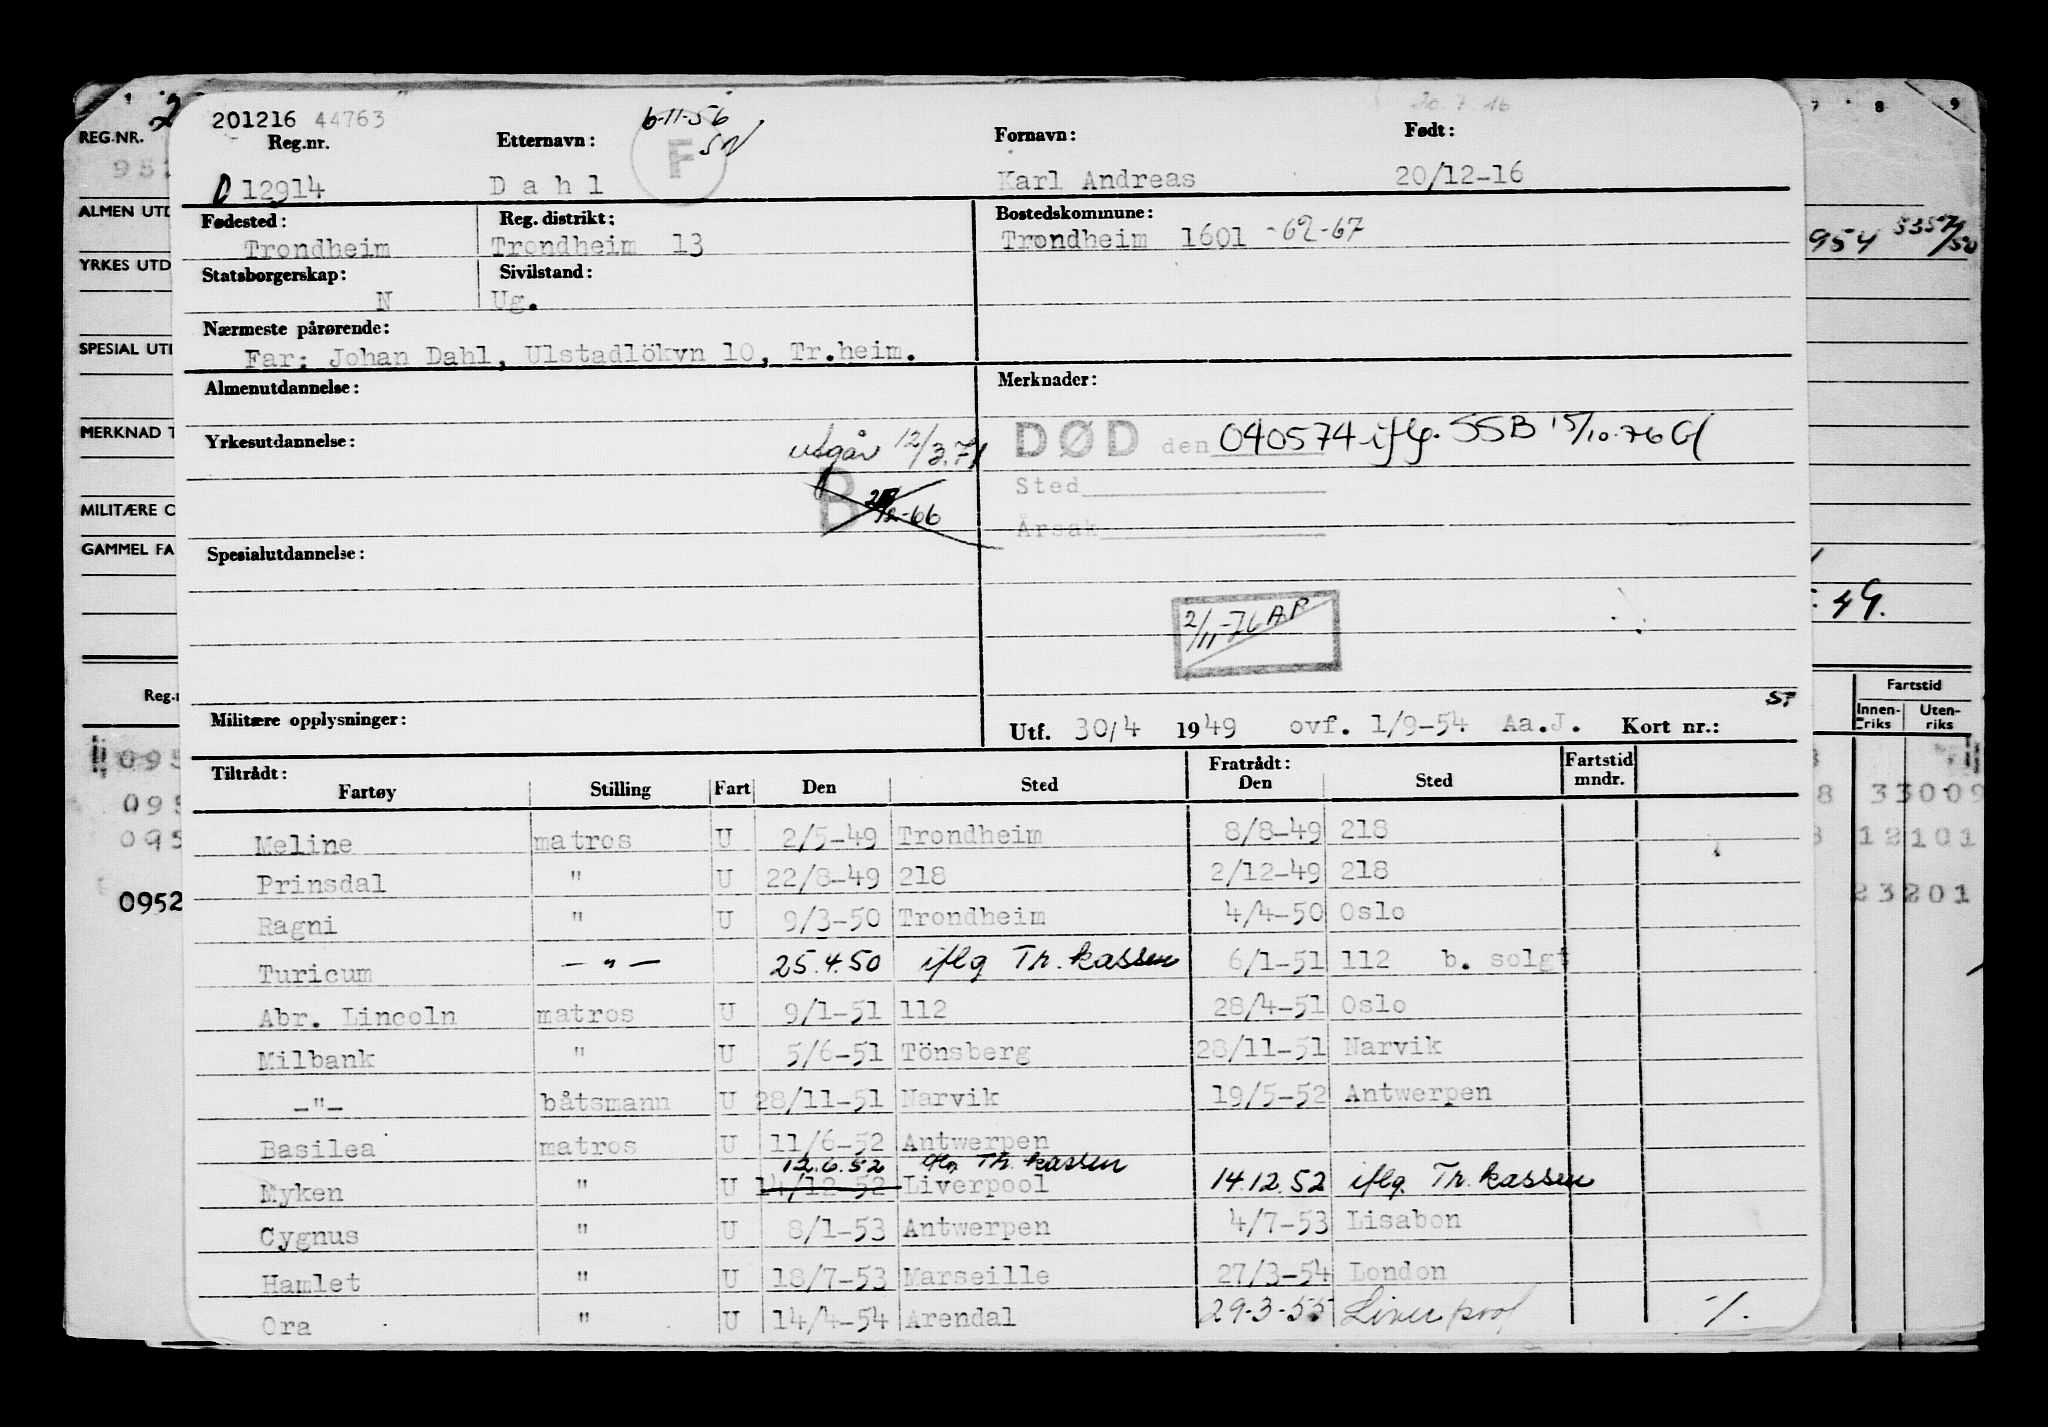 201216 44763 6-11-56 20.7.16
Reg.nr. Etternavn: F SN Fornavn: Født:
D 12914 Dahl Karl Andreas 20/12-16
Fødested: Reg. distrikt: Bostedskommune:
Trondheim Trondheim 13 Trondheim 1601 -62-67
Statsborgerskap: Sivilstand:
N Ug.
Nærmeste pårørende:
Far: Johan Dahl, Ulstadlökvn 10, Tr.heim.
Almenutdannelse: Merknader:
Yrkesutdannelse: utgår 12/3.71 DØD den 040574 iflg. SSB 15/10.76 Gf
B 12-66 Sted
Årsak
Spesialutdannelse:
2/11-76 AP
Militære opplysninger: Utf. 30/4 1949 ovf. 1/9-54 Aa.J. Kort nr.: 57
Tiltrådt: Fratrådt: Fartstid
Fartøy Stilling Fart Den Sted Den Sted mndr.
Meline matros U 2/5-49 Trondheim 8/8-49 218
Prinsdal " U 22/8-49 218 2/12-49 218
Ragni " U 9/3-50 Trondheim 4/4-50 Oslo
Turicum — " — 25.4.50 iflg Tr. kassen 6/1-51 112 b. solgt
Abr. Lincoln matros U 9/1-51 112 28/4-51 Oslo
Milbank " U 5/6-51 Tönsberg 28/11-51 Narvik
-"- båtsmann U 28/11-51 Narvik 19/5-52 Antwerpen
Basilea matros U 11/6-52 Antwerpen
12.6.52 iflg Tr. kassen
Myken " U 14/12-52 Liverpool 14.12.52 iflg. Tr. kassen
Cygnus " U 8/1-53 Antwerpen 4/7-53 Lisabon
Hamlet " U 18/7-53 Marseille 27/3-54 London
Ora " U 14/4-54 Arendal 29-3-55 Liverpool -/.
REG.NR. 2
952
ALMEN UTD
YRKES UTD
SPESIAL UTD
MERKNAD T
MILITÆRE O
GAMMEL FA
Reg.n
095
095
095
0952
7 8 9
954 5357/50
49.
Fartstid
Innen-riks Uten-riks
8 33009
8 12101
23201